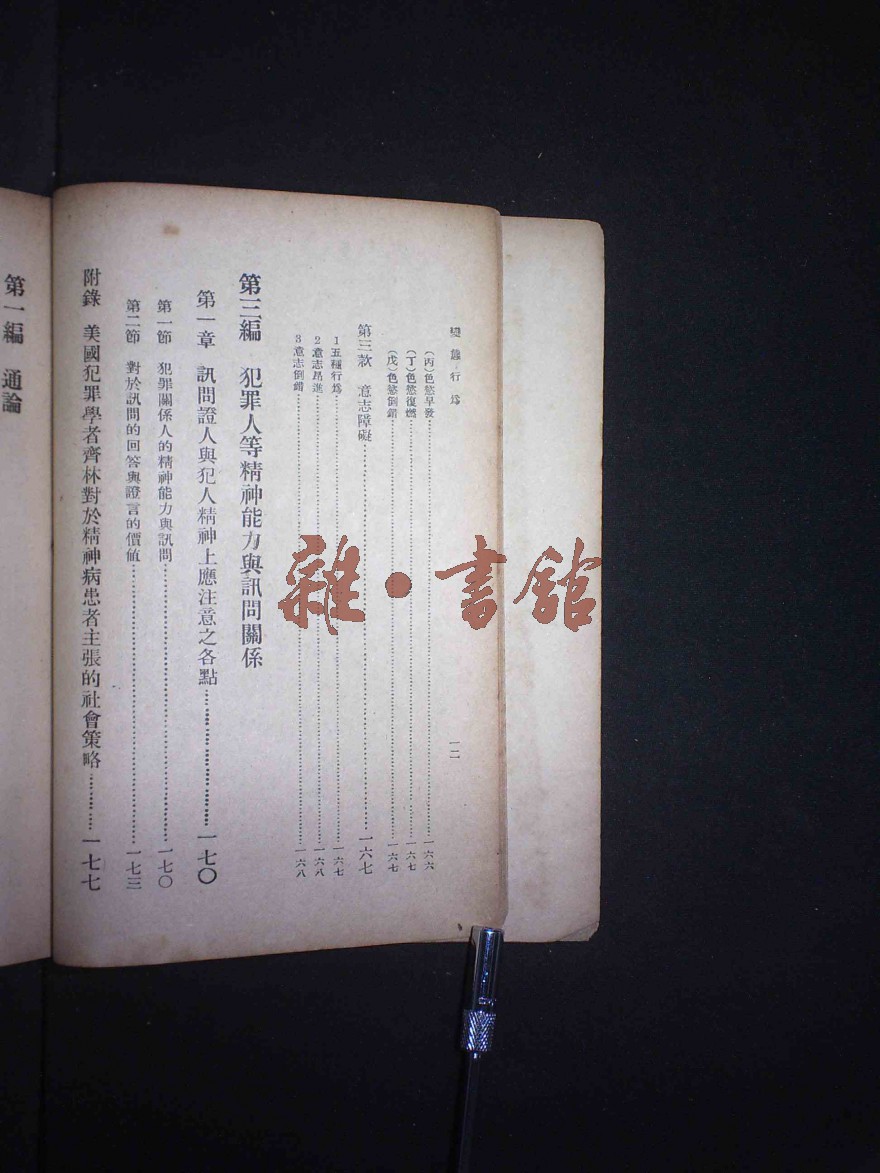 變態行為
一二
(丙)色慾早發……一六六
(丁)色慾復燃……一六七
(戊)色慾倒錯……一六七
第三款 意志障礙……一六七
1五種行為……一六七
2意志昂進……一六八
3意志倒錯……一六八
第三編 犯罪人等精神能力與訊問關係
第一章 訊問證人與犯人精神上應注意之各點……一七〇
第一節 犯罪關係人的精神能力與訊問……一七〇
第二節 對於訊問的回答與證言的價値……一七三
附錄 美國犯罪學者齊林對於精神病患者主張的社會策略……一七七
第一編 通論
雜·書館